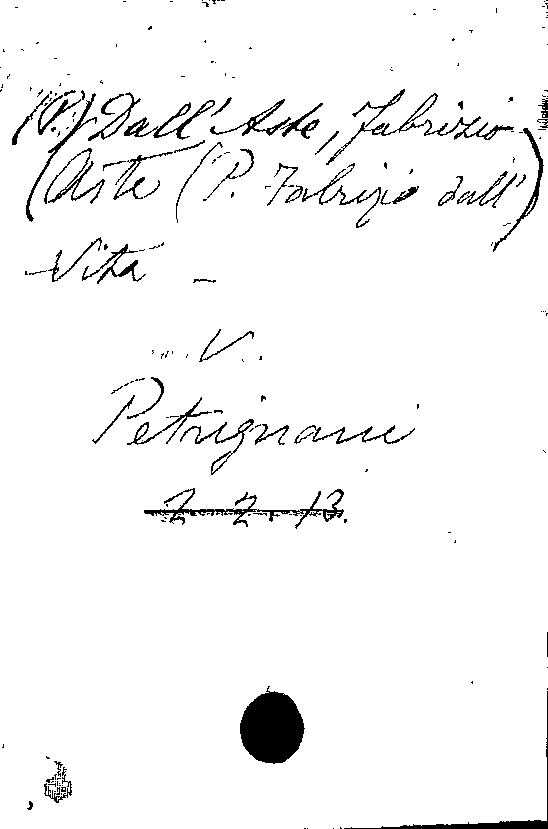 (P.) Dall' Aste, Fabrizio
(Aste (P. Fabrizio dall')
Vita -
V.
Petrignani
2. 2. 13.